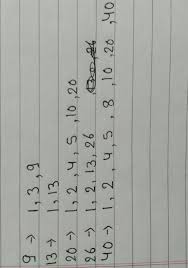 9 → 1, 3, 9
13 → 1, 13
20 → 1, 2, 4, 5, 10, 20
26 → 1, 2, 13, 26
40 → 1, 2, 4, 5, 8, 10, 20, 40